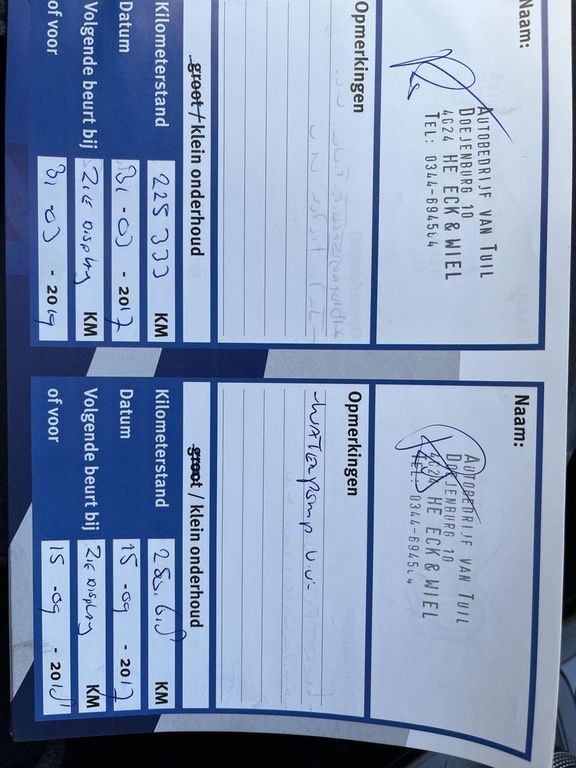 Naam:
AUTOBEDRIJF VAN TUIL
DOEJENBURG 10
4024 HE ECK & WIEL
TEL: 0344-694564
Opmerkingen
groot / klein onderhoud
Kilometerstand 225 333 KM
Datum 31 -03 - 2017
Volgende beurt bij Zie Display KM
of voor 31 -03 - 2019
Naam:
AUTOBEDRIJF VAN TUIL
DOEJENBURG 10
4024 HE ECK & WIEL
TEL: 0344-694564
Opmerkingen
Waterpomp v.v.
groot / klein onderhoud
Kilometerstand KM
Datum 15 -09 - 2017
Volgende beurt bij Zie Display KM
of voor 15 -09 - 2018